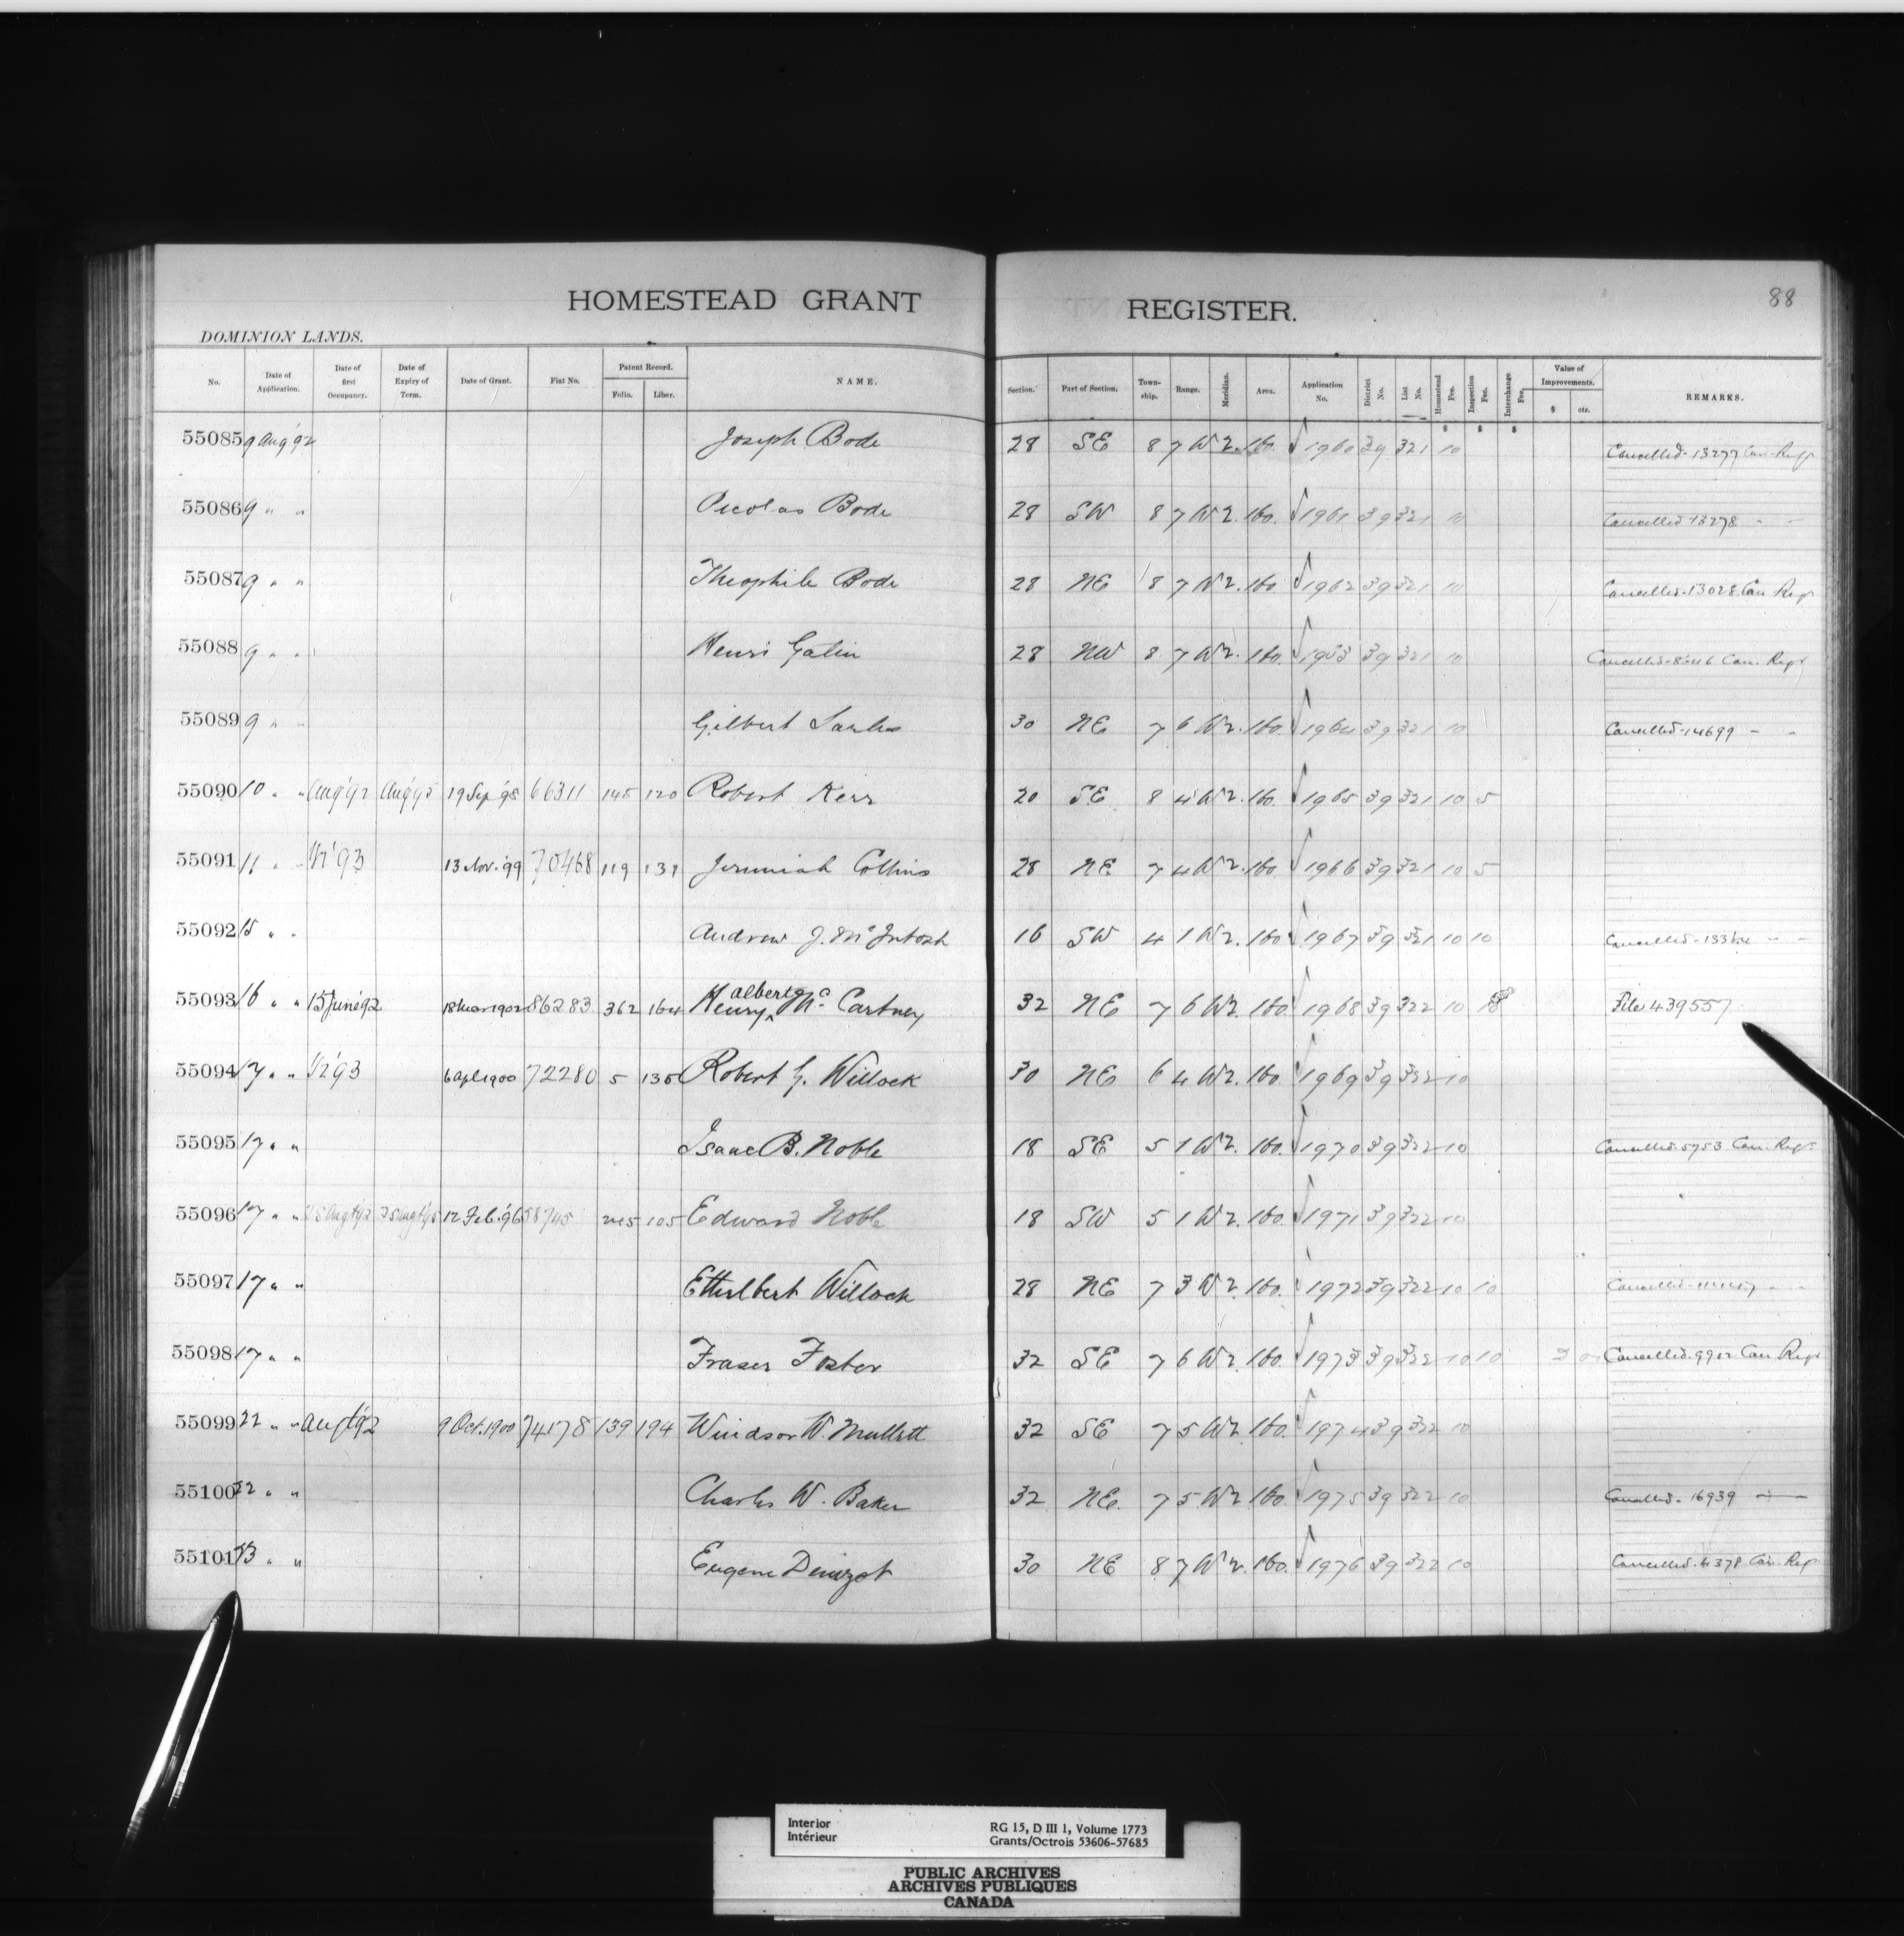 88
HOMESTEAD GRANT REGISTER.
DOMINION LANDS.
No. Date of Application. Date of first Occupancy. Date of Expiry of Term. Date of Grant. Fiat No. Patent Record. Folio. Liber. NAME. Section. Part of Section. Town-ship. Range. Meridian. Area. Application No. District No. List No. Homestead Fee. Inspection Fee. Interchange Fee. Value of Improvements. $ cts. REMARKS.
$ $ $
55085 9 Aug '92 Joseph Bode 28 SE 8 7 W 2. 160. 1960 39 321 10 Cancelled - 13277 Can. Regr
55086 9 " " Bode 28 SW 8 7 W 2. 160. 1961 39 321 10 Cancelled 13278 " "
55087 9 " " Theophile Bode 28 NE 8 7 W 2. 160. 1962 39 321 10 Cancelled - 13028 Can Regr
55088 9 " " Henri Gatin 28 NW 8 7 W 2. 160. 39 321 10 Cancelled Can. Regr
55089 9 " " Gilbert 30 NE 7 6 W 2. 160. 1964 39 321 10 Cancelled - 14699 " "
55090 10 " " Aug '92 Aug '95 19 Sep '98 66311 145 120 Robert Kerr 20 SE 8 4 W 2. 160. 1965 39 321 10 5
55091 11 " " '93 13 Nov. '99 70468 119 131 Jeremiah Collins 28 NE 7 4 W 2. 160. 1966 39 321 10 5
55092 15 " " Andrew J. McIntosh 16 SW 4 1 W 2. 160 1967 39 321 10 10 Cancelled - " "
55093 16 " " 15 June '92 18 Mar 1902 86283 362 164 Henry Albert McCartney 32 NE 7 6 W 2. 160. 1968 39 322 10 File 439557
55094 17 " " '93 6 Apl 1900 72280 5 135 Robert G. Willock 30 NE 6 4 W 2. 160. 1969 39 322 10
55095 17 " " Isaac B. Noble 18 SE 5 1 W 2. 160. 1970 39 322 10 Cancelled 5753 Can. Regr
55096 17 " " 25 Aug '92 25 Aug '95 12 Feb. '96 58745 245 105 Edward Noble 18 SW 5 1 W 2. 160. 1971 39 322 10
55097 17 " " Ethelbert Willock 28 NE 7 3 W 2. 160. 1972 39 322 10 10 Cancelled " "
55098 17 " " Fraser Foster 32 SE 7 6 W 2. 160. 1973 39 322 10 10 Cancelled 9902 Can Regr
55099 22 " " Aug '92 9 Oct. 1900 74178 139 194 Windsor W. Mullett 32 SE 7 5 W 2. 160. 1974 39 322 10
55100 22 " " Charles W. Baker 32 NE. 7 5 W 2. 160. 1975 39 322 10 Cancelled - 16939 " "
55101 23 " " Eugene Denizot 30 NE 8 7 W 2. 160. 1976 39 322 10 Cancelled - 4378 Can. Regr
Interior RG 15, D III 1, Volume 1773
Intérieur Grants/Octrois 53606-57685
PUBLIC ARCHIVES
ARCHIVES PUBLIQUES
CANADA